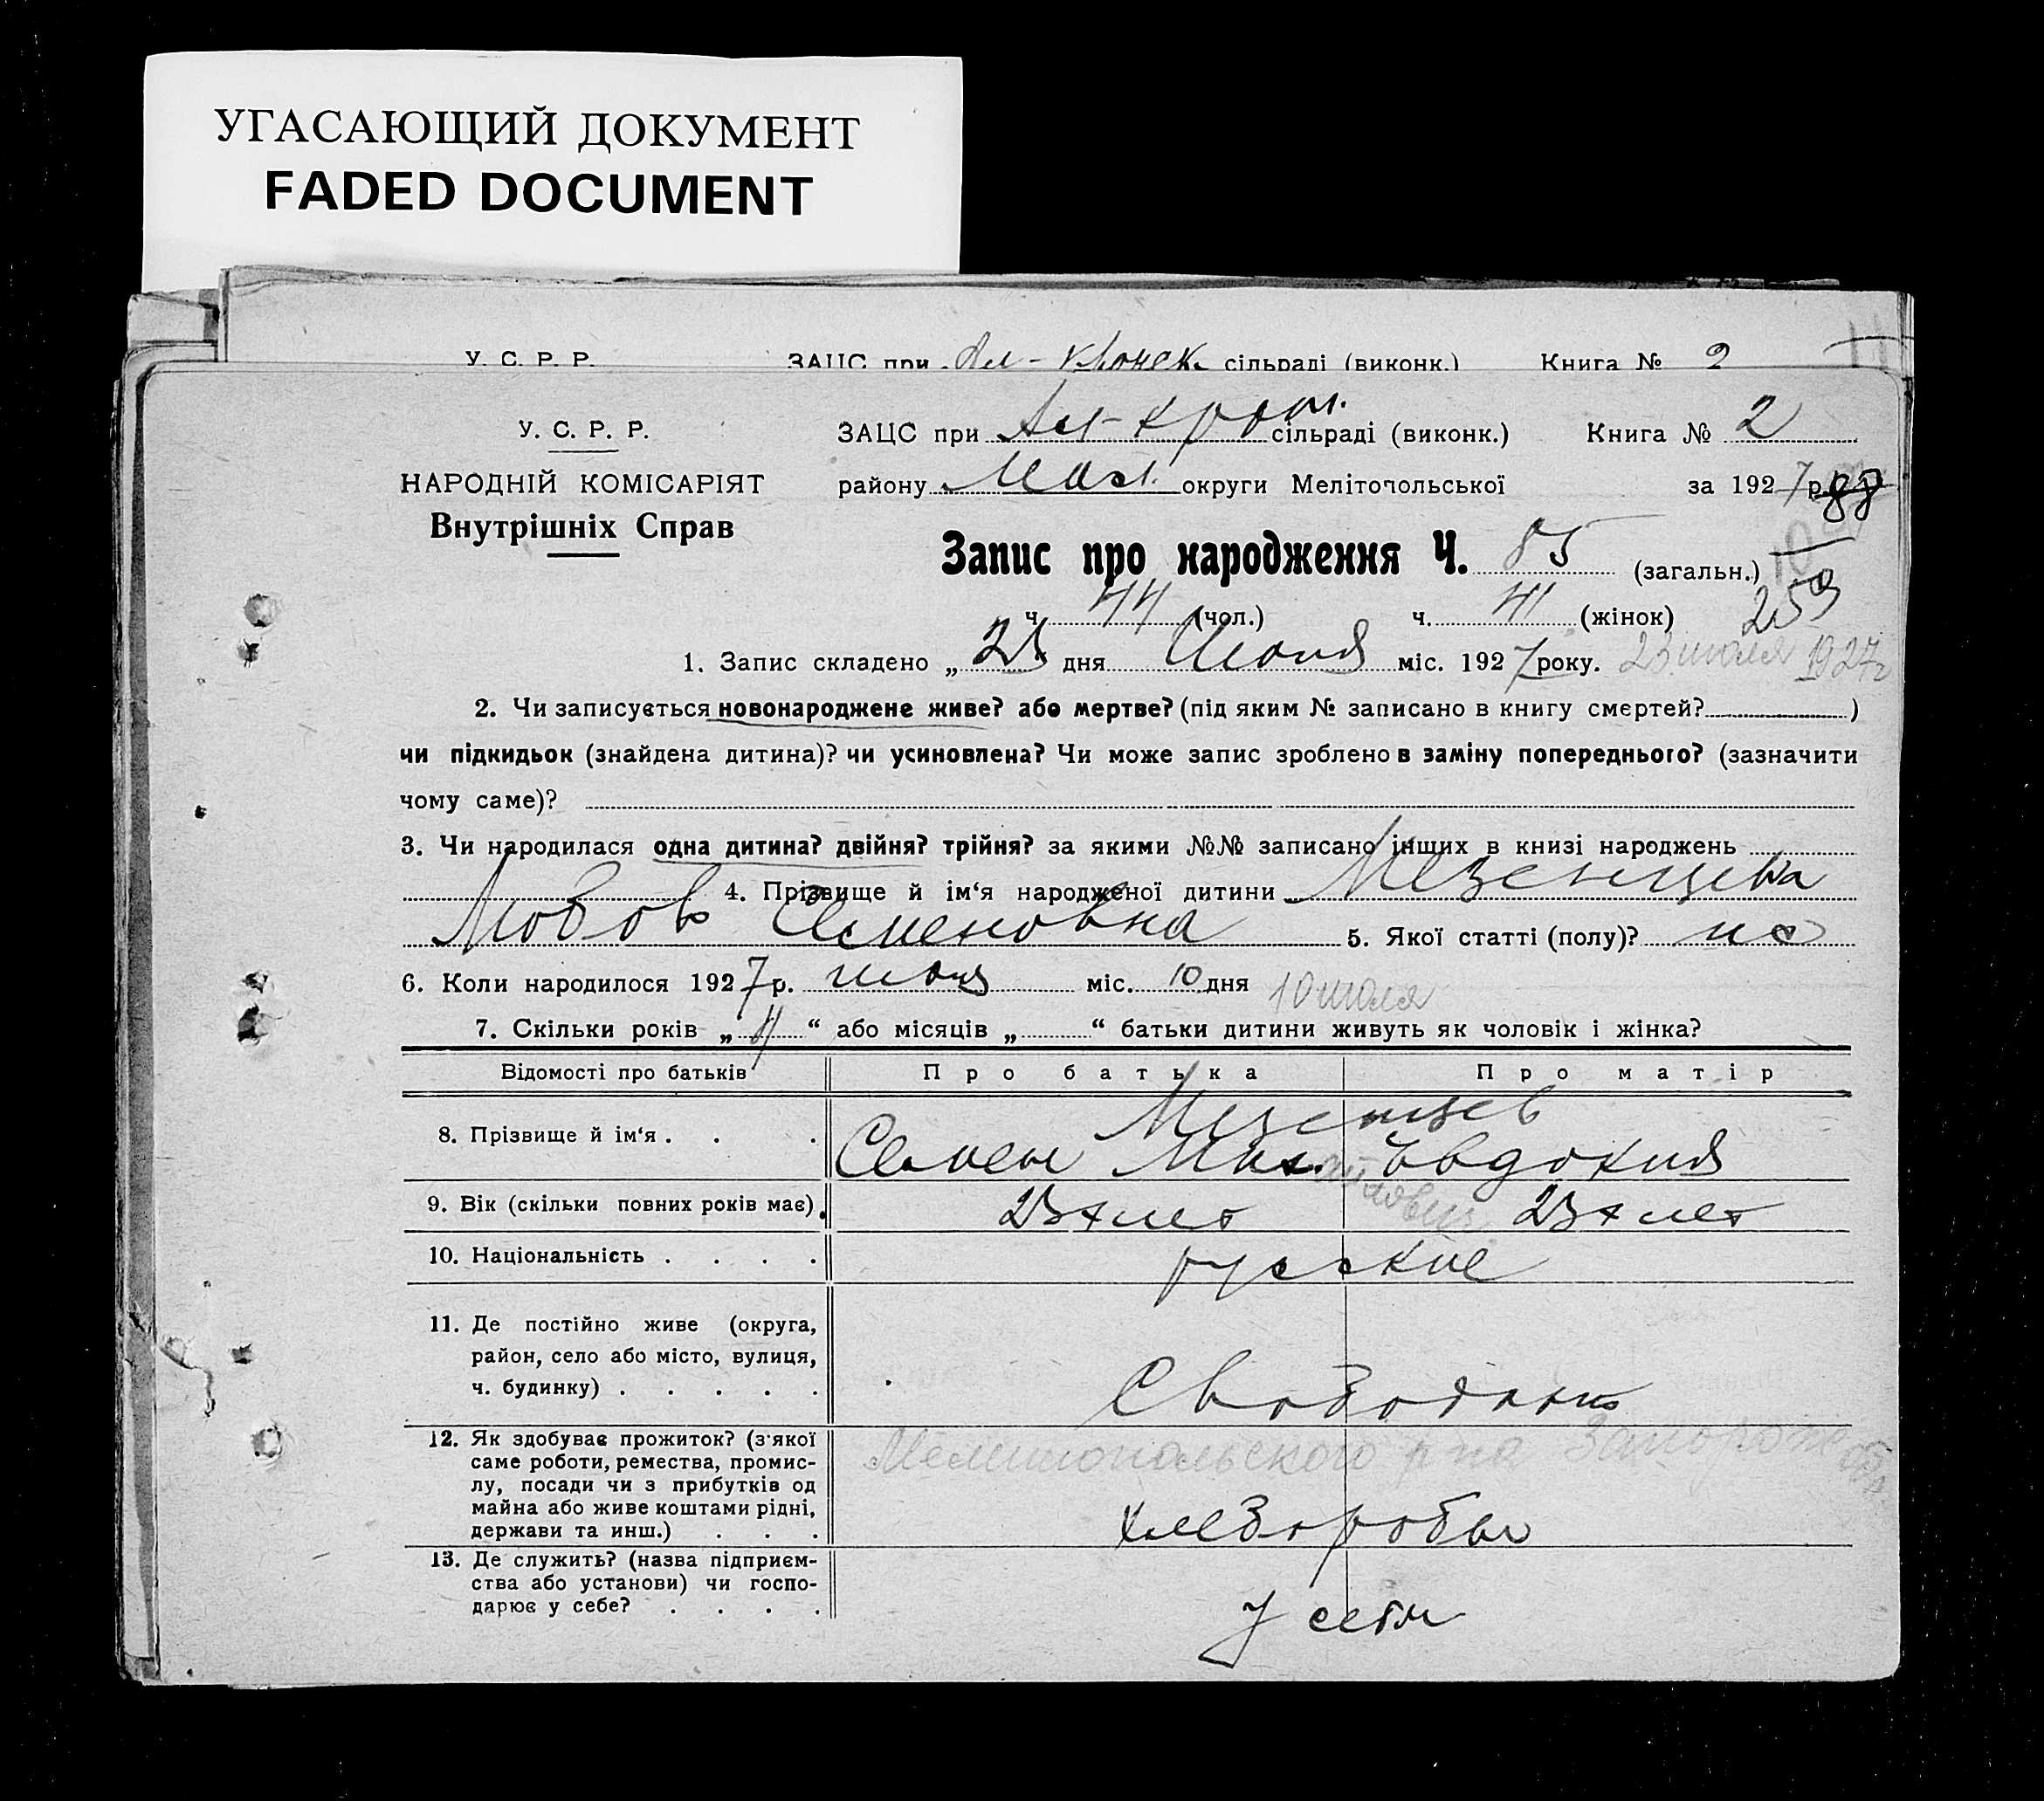 УГАСАЮЩИЙ ДОКУМЕНТ
FADED DOCUMENT
У. С. Р. Р. ЗАЦС при сільраді (виконк.) Книга № 2
У. С. Р. Р. ЗАЦС при сільраді (виконк.) Книга № 2
НАРОДНІЙ КОМІСАРІЯТ району округи Мелітопольської за 1927 р.
Внутрішніх Справ
Запис про народження Ч. 85 (загальн.)
ч. 44 (чол.) ч. 41 (жінок) 259
1. Запис складено „ 23 дня Июля міс. 1927 року. 23 июля 1927 г
2. Чи записується новонароджене живе? або мертве? (під яким № записано в книгу смертей? )
чи підкидьок (знайдена дитина)? чи усиновлена? Чи може запис зроблено в заміну попереднього? (зазначити
чому саме)?
3. Чи народилася одна дитина? двійня? трійня? за якими №№ записано інших в книзі народжень
4. Прізвище й ім‘я народженої дитини Мезенцева
Любовь Семеновна 5. Якої статті (полу)?
6. Коли народилося 1927 р. июля міс. 10 дня 10 июля
7. Скільки років „ “ або місяців „ “ батьки дитини живуть як чоловік і жінка?
Відомості про батьків Про батька Про матір
8. Прізвище й ім‘я . . . Мезенцев
Семен Мих. айлович Евдокия
9. Вік (скільки повних років має). 23 х лет 23 х лет
10. Національність . . . . русские
11. Де постійно живе (округа,
район, село або місто, вулиця,
ч. будинку) . . . . .
12. Як здобуває прожиток? (з якої Мелитопольского р-на Запорож обл.
саме роботи, ремества, промис-
лу, посади чи з прибутків од
майна або живе коштами рідні, хлеборобы
держави та инш.) . . .
13. Де служить? (назва підприєм-
ства або установи) чи госпо-
дарює у себе? . . . . У себя